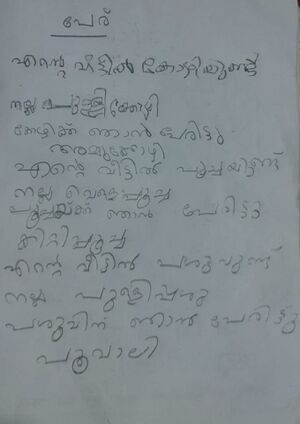 പേര്
എന്റെ വീട്ടിൽ കോഴിയുണ്ട്
നല്ല പുള്ളിക്കോഴി
കോഴിക്ക് ഞാൻ പേരിട്ടു
എന്റെ വീട്ടിൽ പൂച്ചയുണ്ട്
നല്ല വെള്ളപൂച്ച
പൂച്ചയ്ക്ക് ഞാൻ പേരിട്ടു
കിറ്റിപ്പൂച്ച
എന്റെ വീട്ടിൽ പശുവുണ്ട്
നല്ല പുള്ളിപ്പശു
പശുവിന് ഞാൻ പേരിട്ടു
പൂവാലി